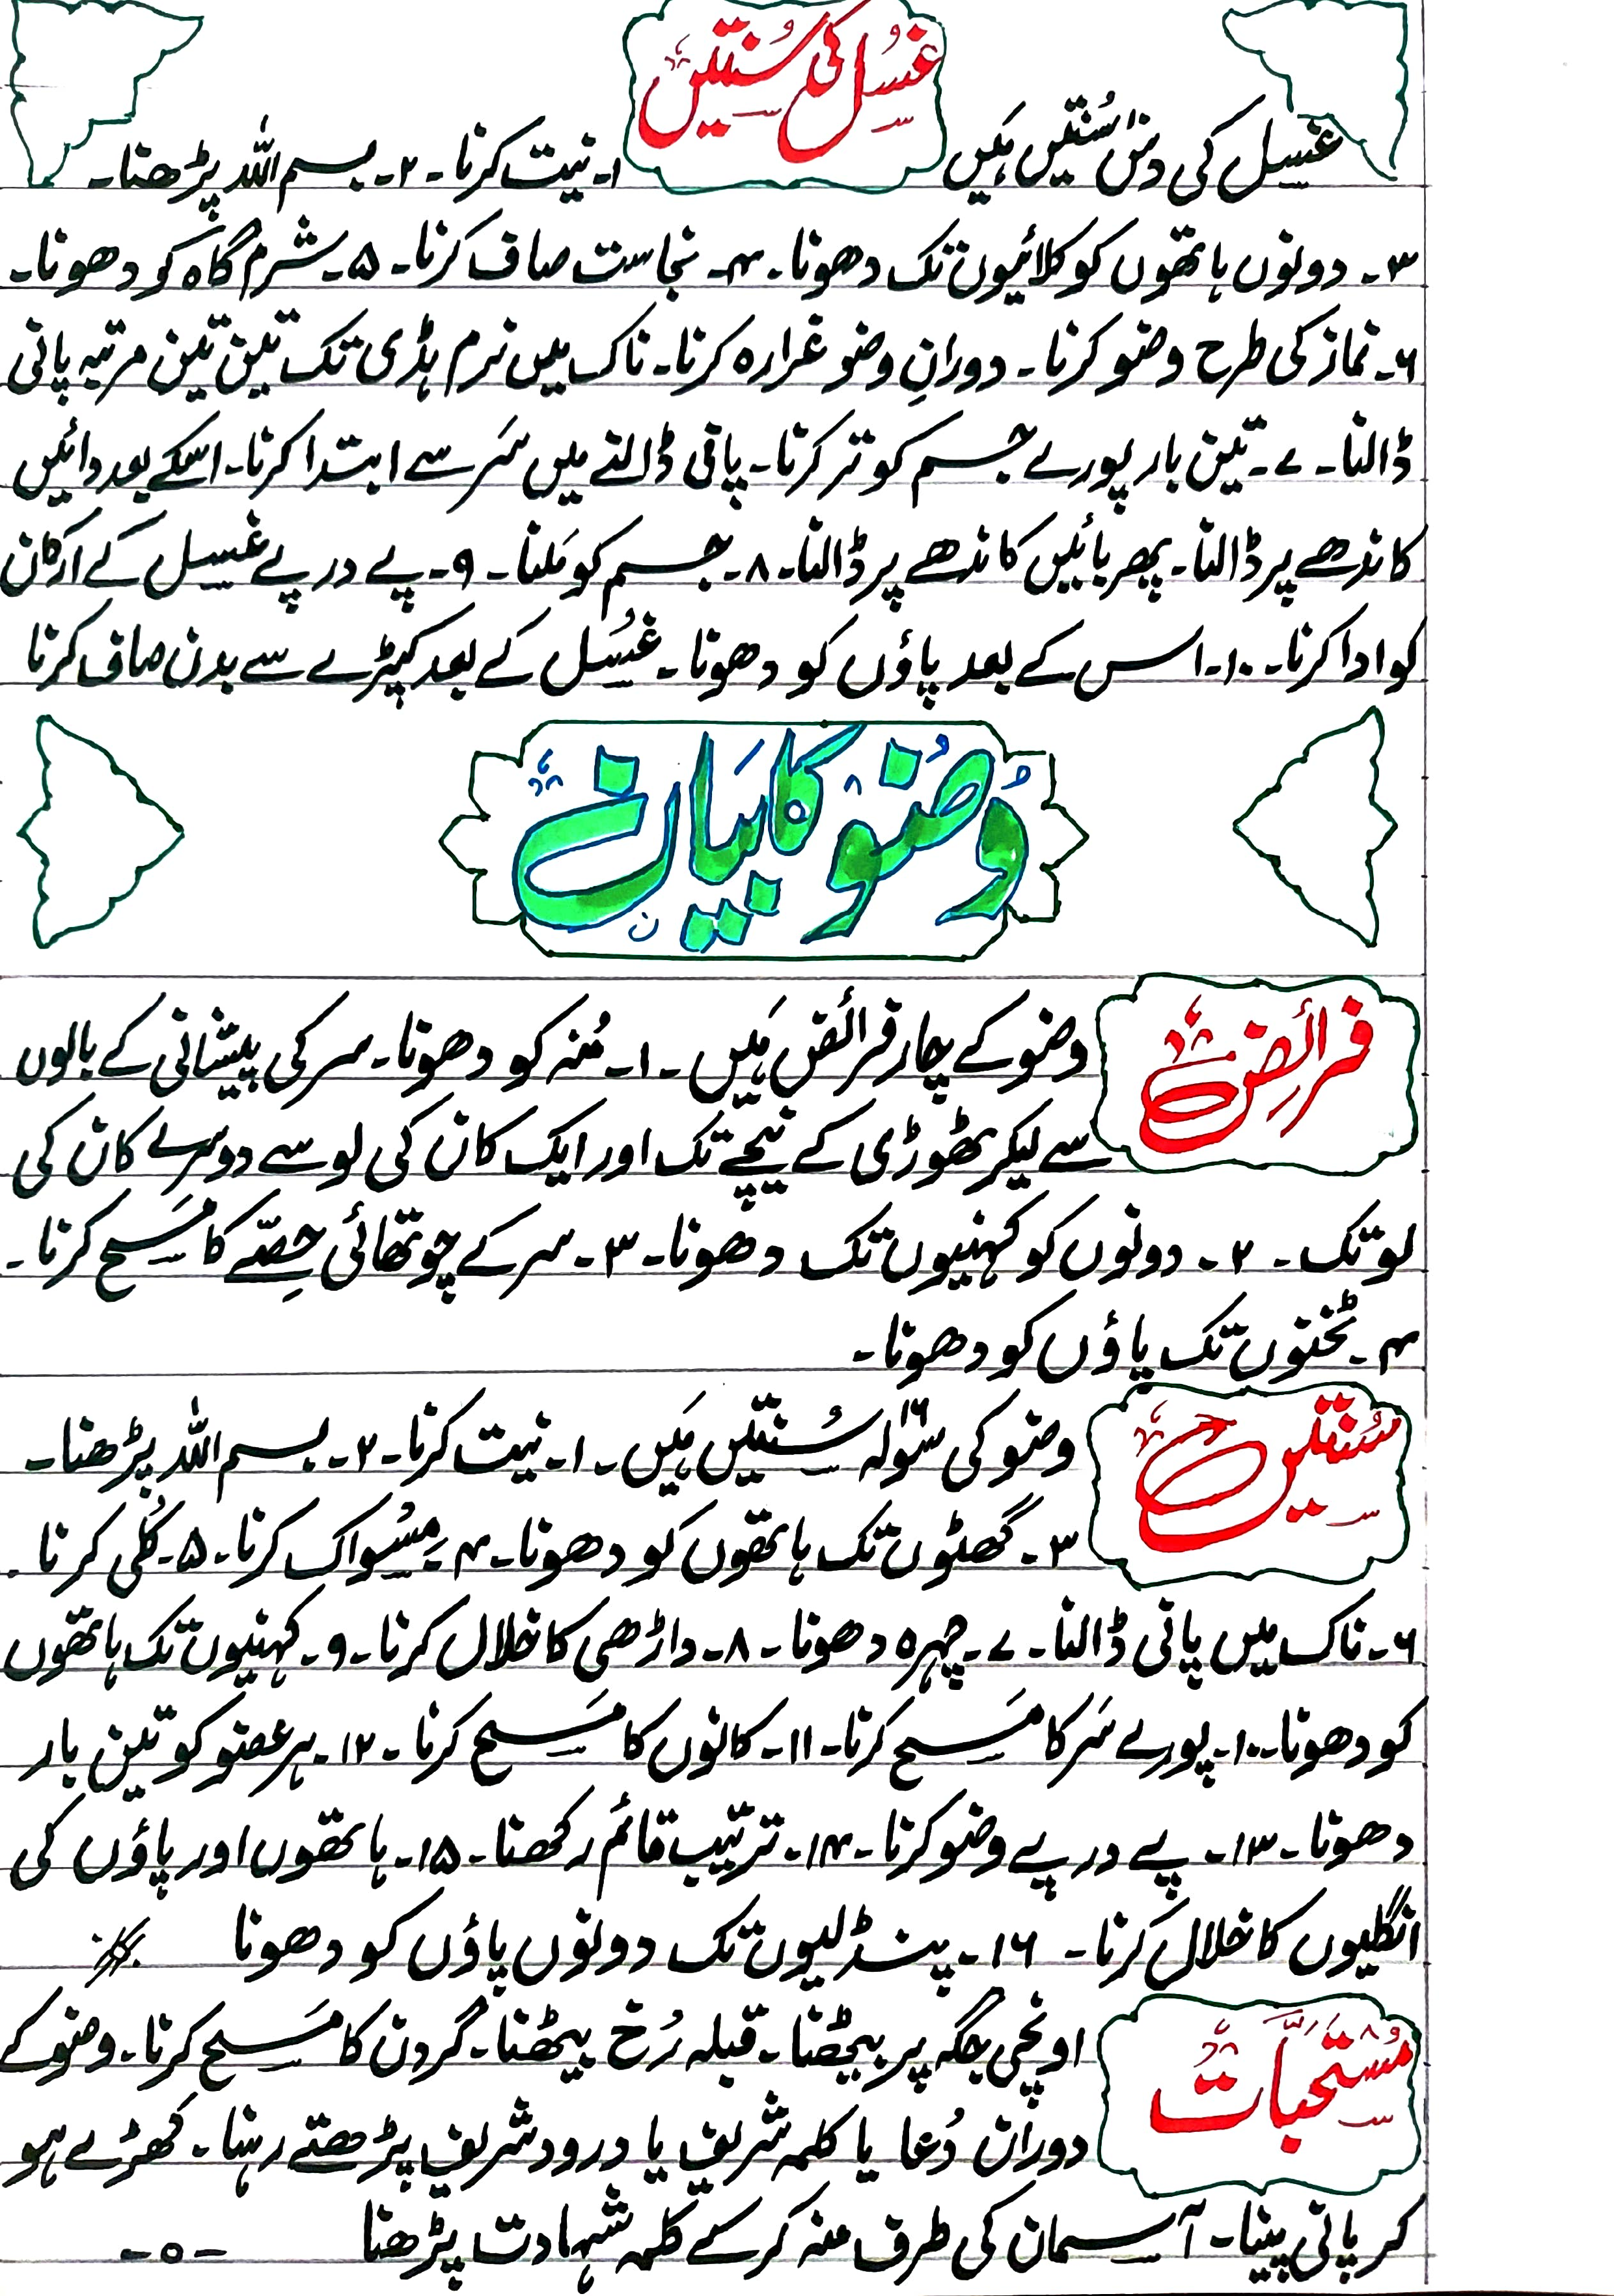 غسل کی سنتیں
غسل کی دس سُنتیں ہَیں ۱۔ نیت کرنا۔ ۲۔ بسم اللہ پڑھنا۔
۳۔ دونوں ہاتھوں کو کلائیوں تک دھونا۔ ۴۔ نجاست صاف کرنا۔ ۵۔ شرم گاہ کو دھونا۔
۶۔ نماز کی طرح وضو کرنا۔ دورانِ وضو غرارہ کرنا۔ ناک میں نرم ہڈی تک تین تین مرتبہ پانی
ڈالنا۔ ۷۔ تین بار پورے جسم کو تر کرنا۔ پانی ڈالنے میں سَر سے ابتدا کرنا۔ اسکے بعد دائیں
کاندھے پر ڈالنا۔ پھر بائیں کاندھے پر ڈالنا۔ ۸۔ جسم کو مَلنا۔ ۹۔ پے درپے غسل کے ارکان
کو ادا کرنا۔ ۱۰۔ اس کے بعد پاؤں کو دھونا۔ غُسل کے بعد کپڑے سے بدن صاف کرنا
وُضُو کا بَیان
فرائض
وضو کے چار فرائض ہَیں۔ ۱۔ مُنہ کو دھونا۔ سر کی پیشانی کے بالوں
سے لیکر ٹھوڑی کے نیچے تک اور ایک کان کی لو سے دوسرے کان کی
لو تک۔ ۲۔ دونوں کو کہنیوں تک دھونا۔ ۳۔ سر کے چوتھائی حِصّے کا مَسح کرنا۔
۴۔ ٹخنوں تک پاؤں کو دھونا۔
سُنتیں
وضو کی سولہ ۱۶ سُنتیں ہَیں۔ ۱۔ نیت کرنا۔ ۲۔ بسم اللہ پڑھنا۔
۳۔ گھٹوں تک ہاتھوں کو دھونا۔ ۴۔ مِسُواک کرنا۔ ۵۔ کُلی کرنا۔
۶۔ ناک میں پانی ڈالنا۔ ۷۔ چہرہ دھونا۔ ۸۔ داڑھی کا خلال کرنا۔ ۹۔ کہنیوں تک ہاتھوں
کو دھونا۔ ۱۰۔ پورے سَر کا مَسح کرنا۔ ۱۱۔ کانوں کا مَسح کرنا۔ ۱۲۔ ہر عضو کو تین بار
دھونا۔ ۱۳۔ پے درپے وضو کرنا۔ ۱۴۔ ترتیب قائم رکھنا۔ ۱۵۔ ہاتھوں اور پاؤں کی
انگلیوں کا خلال کرنا۔ ۱۶۔ پنڈلیوں تک دونوں پاؤں کو دھونا
مُستَحَبَّات
اونچی جگہ پر بیٹھنا۔ قبلہ رُخ بیٹھنا۔ گردن کا مَسح کرنا۔ وضو کے
دوران دُعا یا کلمہ شریف یا درود شریف پڑھتے رہنا۔ کھڑے ہو
کر پانی پینا۔ آسمان کی طرف منہ کر کے کلمہ شہادت پڑھنا